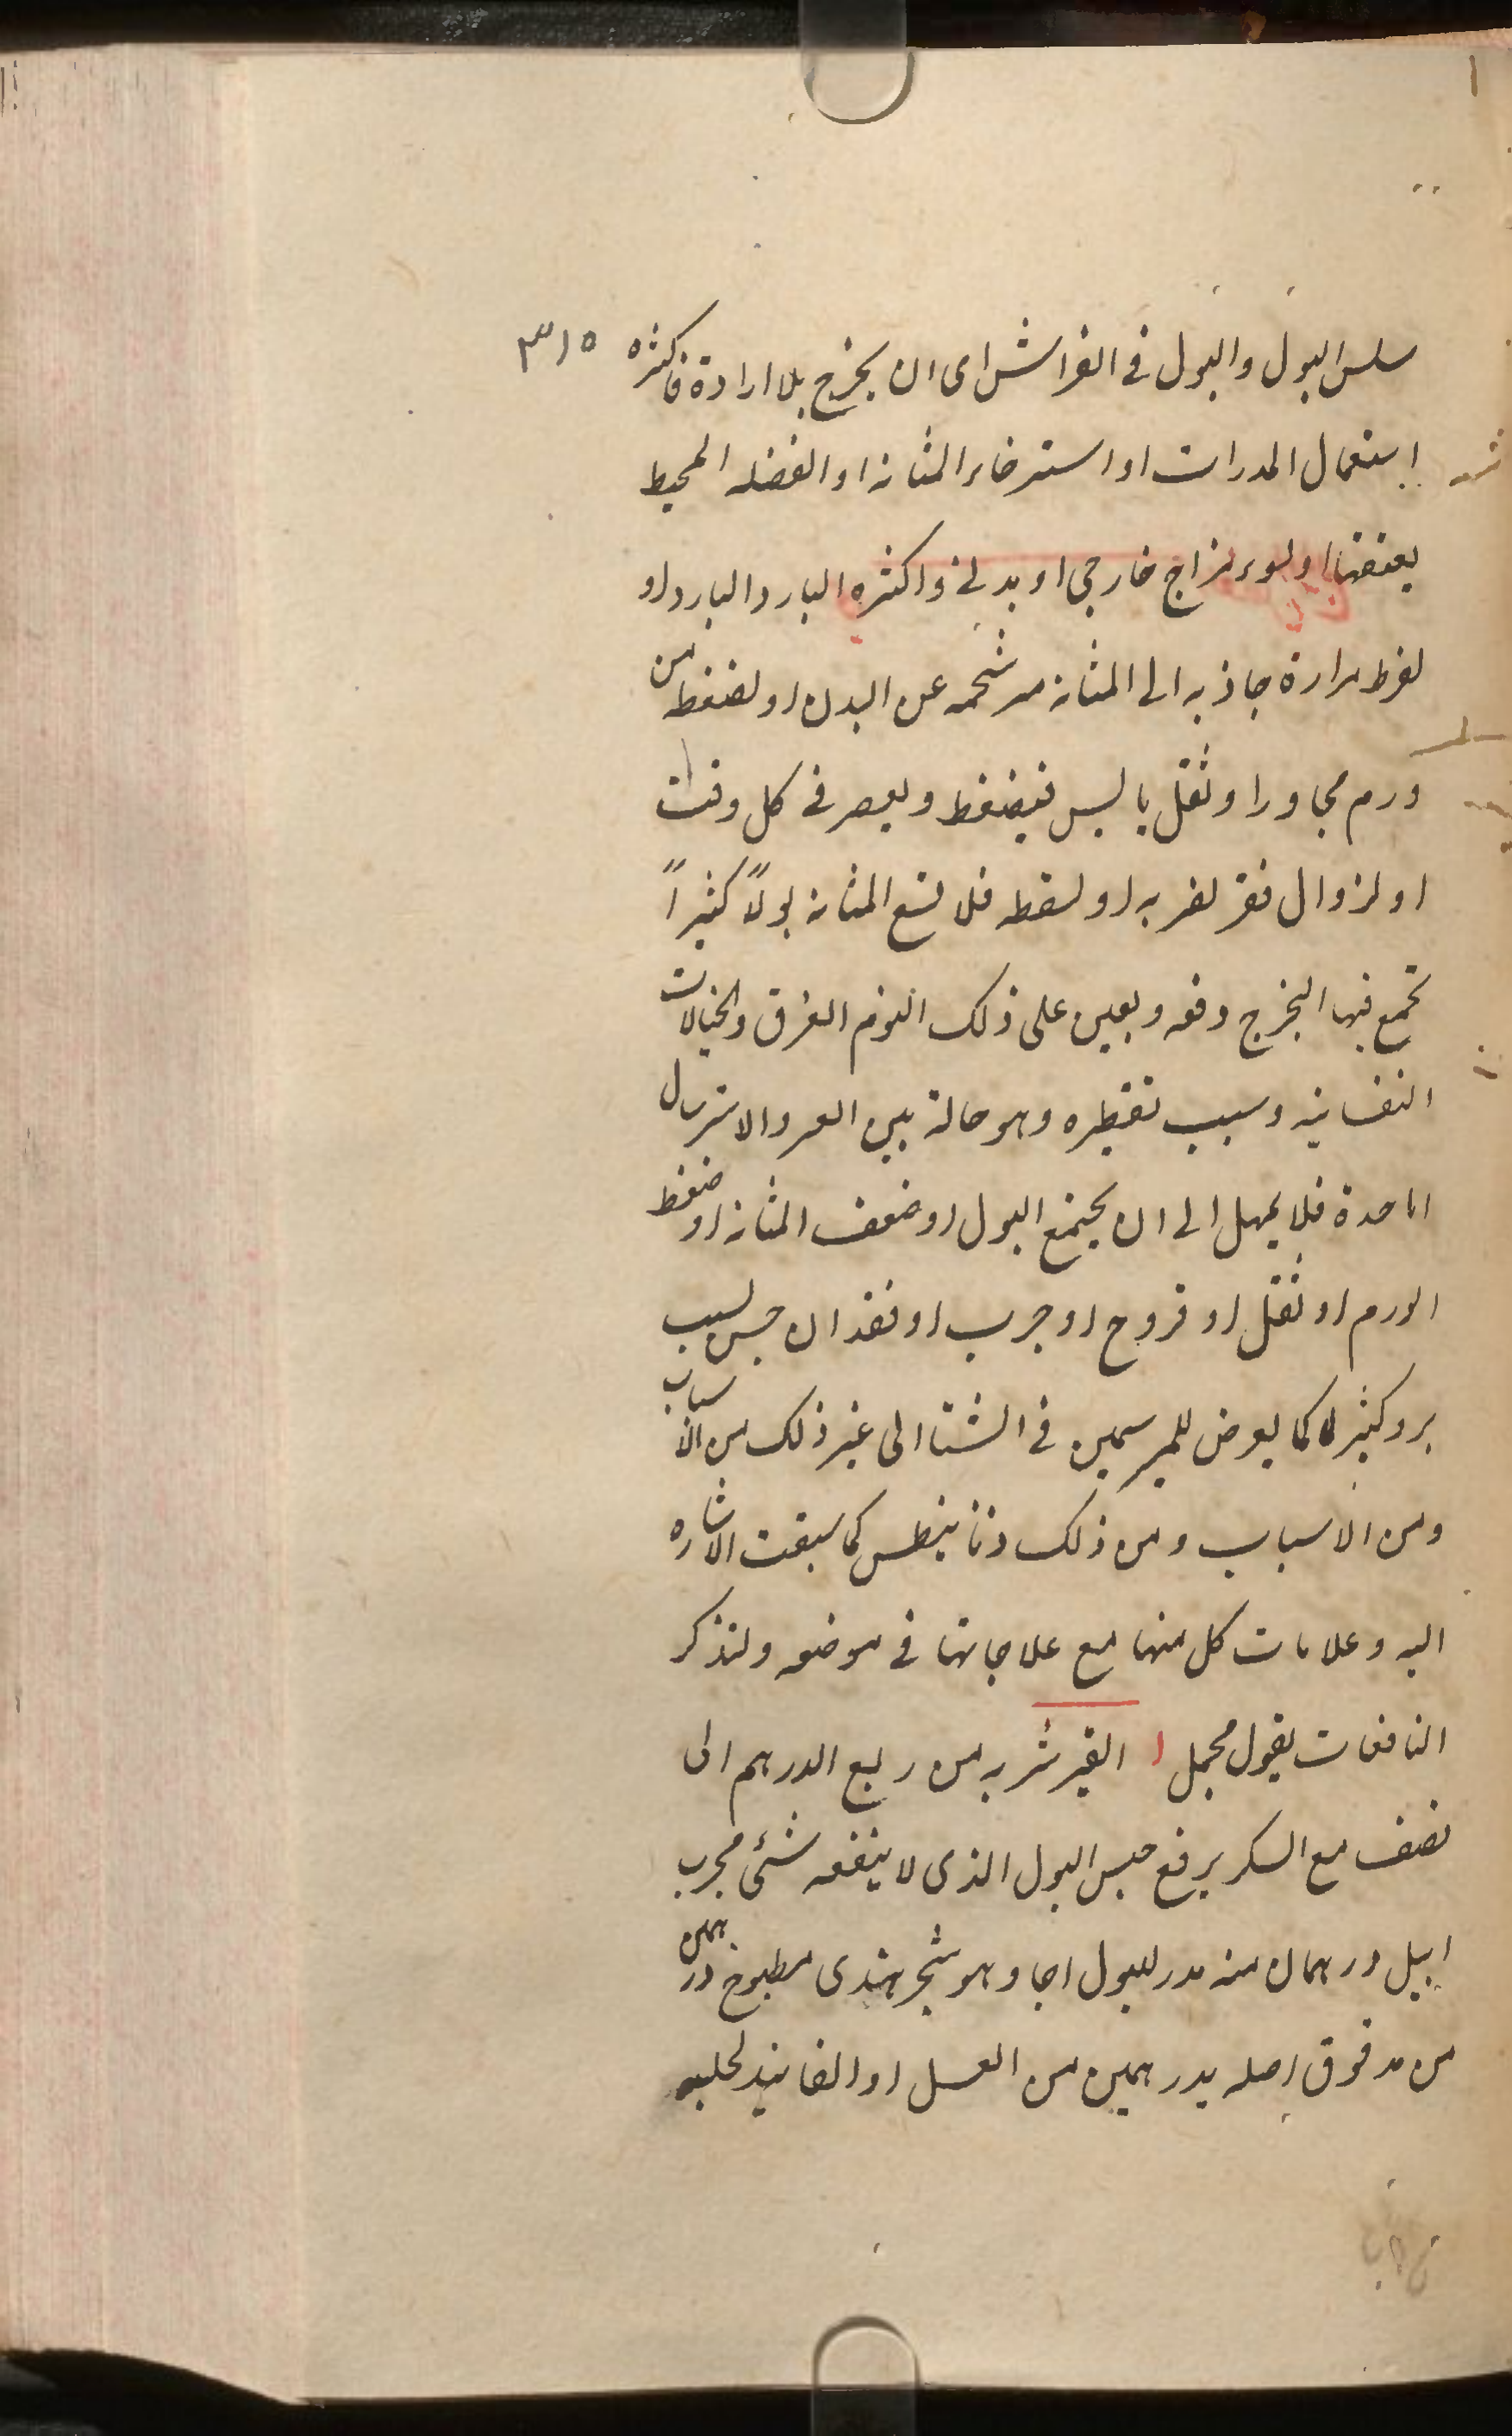 سلس البول والبول فى الفراش اى ان يخرج بلا ارادة فاكثره ٣١٥
استعمال المدرات او استرخاء المثانه او العضله المحيط
بعنقها او لسوء مزاج خارجى او بدنى واكثره البارد البارد او
لفرط حرارة جاذبه الى المثانه مرشحه عن البدن او لضغط من
ورم مجاور او ثفل يابس فيضغط ويعصر فى كل وقت
او لزوال فقر لضربه او لسقطه فلا تسع المثانه بولاً كثيراً
تجمع فيها البخرج دفعه ويعين على ذلك النوم الغرق والخيالات
النفسانيه وسبب تقطيره وهو حالة بين العسر والاسترسال
اما حدة فلا يمهل الى ان يجتمع البول او ضعف المثانه او ضغط
الورم او ثفل او قروح او جرب او فقدان حس بسبب
برد كثير لا كما يعرض للمبرسمين فى الشتا الى غير ذلك من الاسباب
ومن الاسباب ومن ذلك ذيانيطس كما سبقت الاشاره
اليه وعلامات كل منها مع علاجاتها فى موضعه ولنذكر
النافعات بقول مجمل ا القير شربه من ربع الدرهم الى
نصف مع السكر يرفع حبس البول الذى لا ينفعه شئ مجرب
ابهل درهمان منه مدر للبول اجا وهو شجر هندى مطبوخ درهمين
من مدقوق اصله بدرهمين من العسل او الفانيد لحلبه